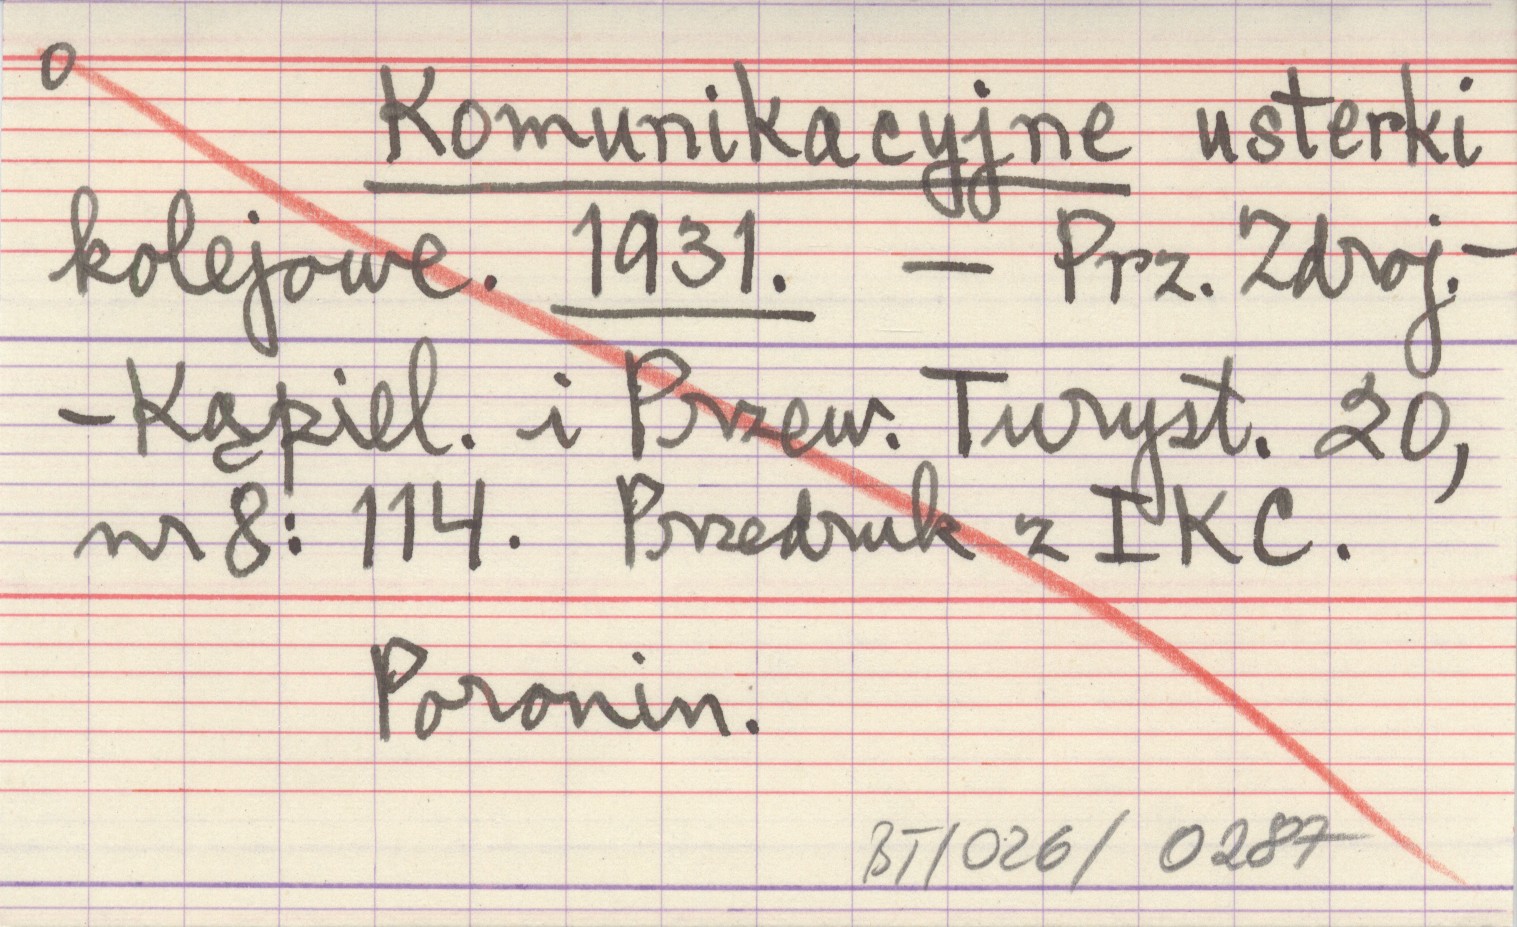 0
Komunikacyjne usterki
kolejowe. 1931. — Prz. Zdroj.-
-Kąpiel. i Przew. Turyst. 20,
nr 8: 114. Przedruk z IKC.
Poronin.
BT/026/ 0287